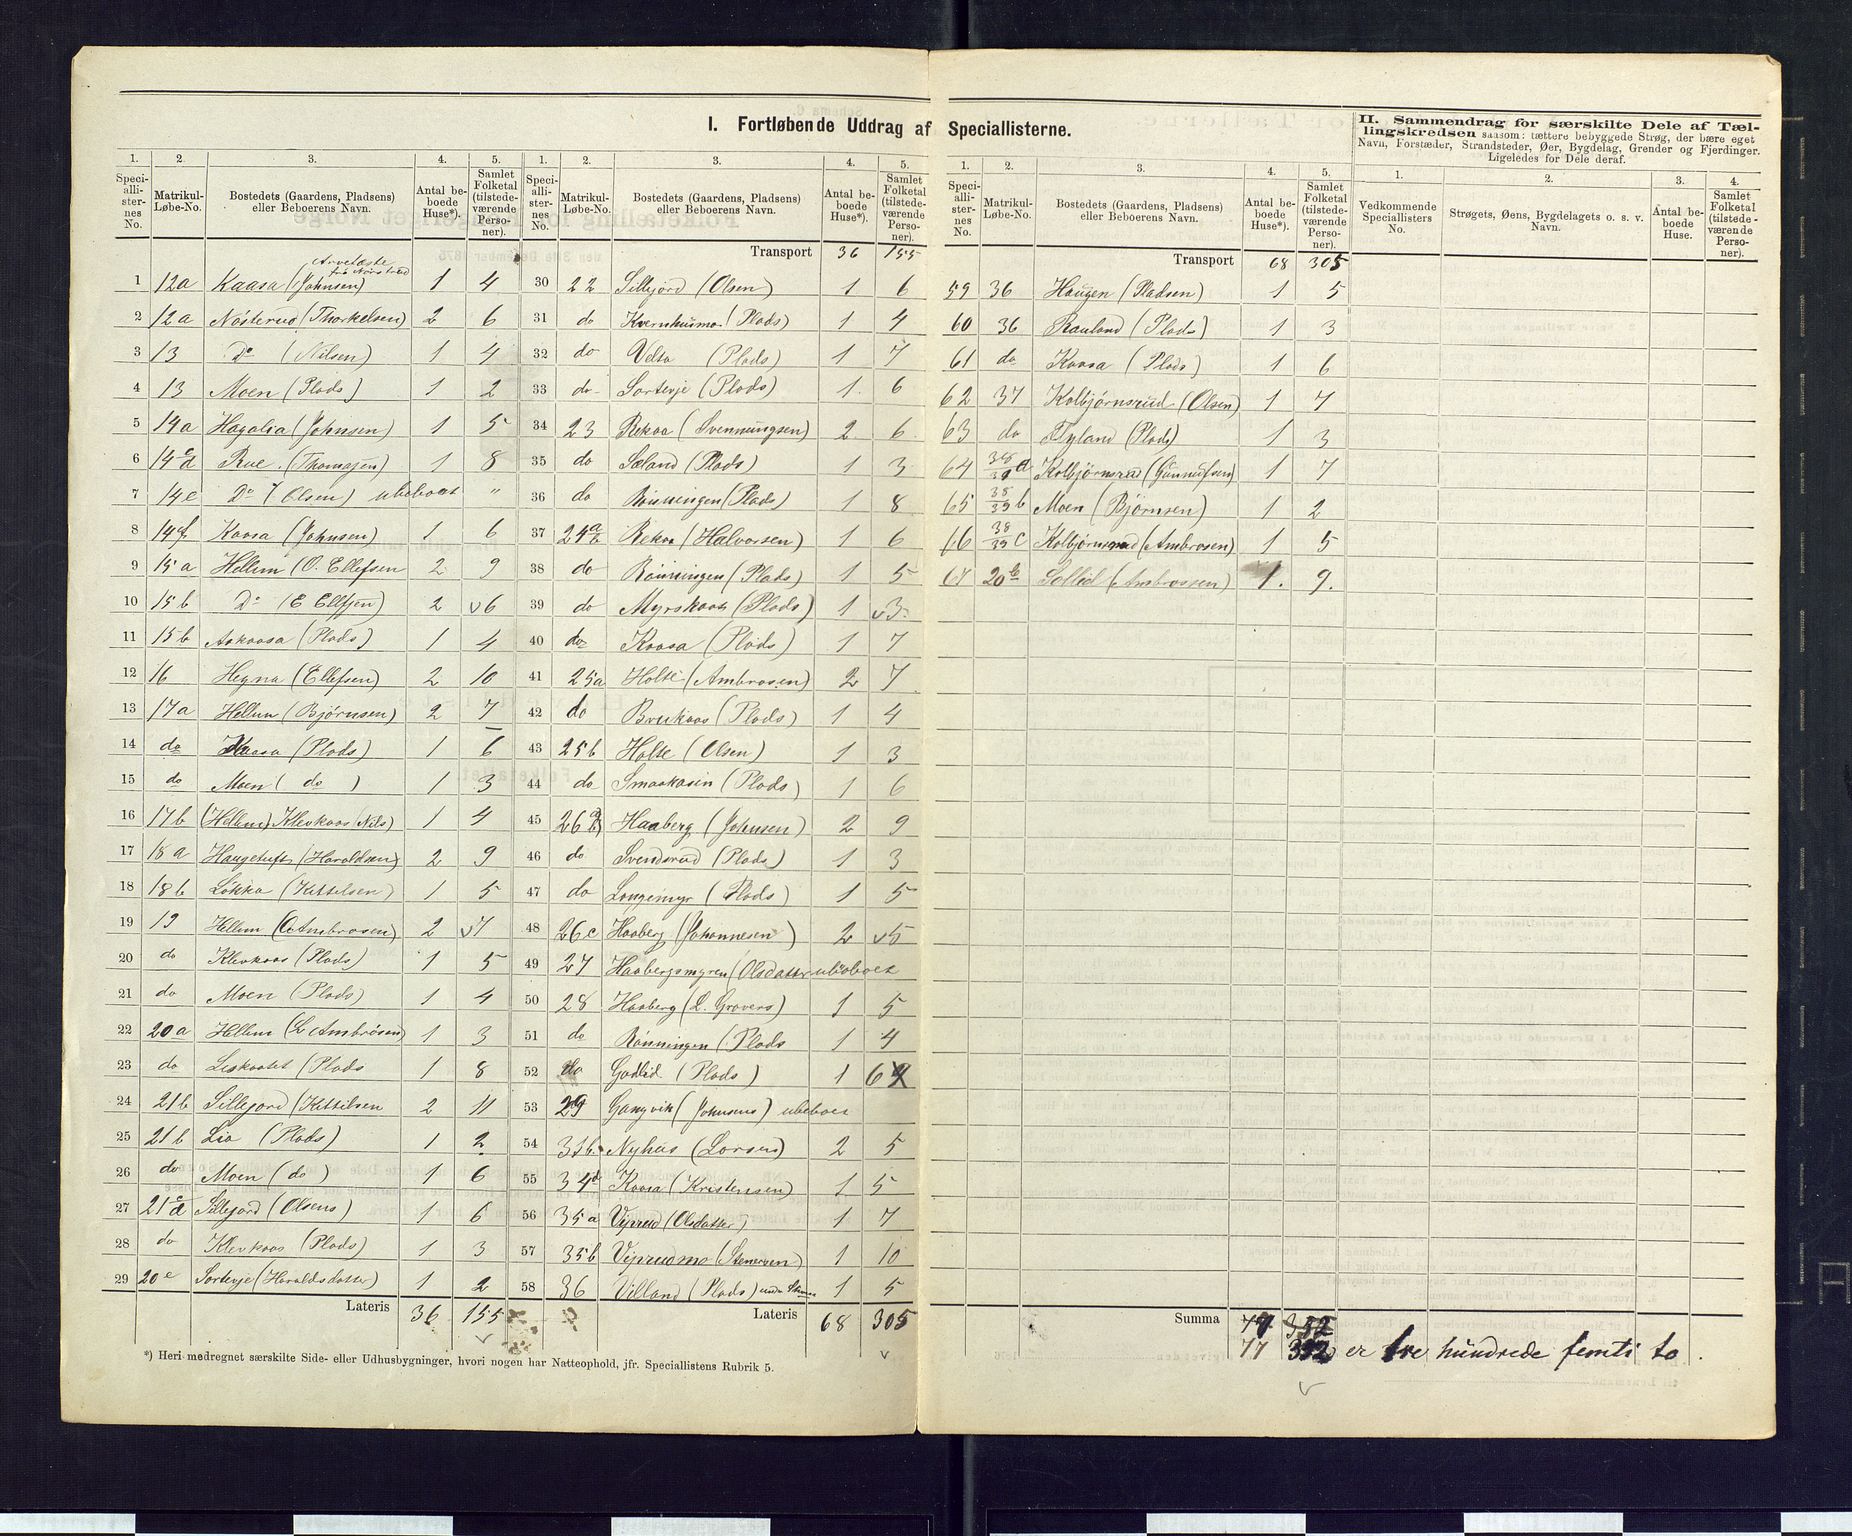 I. Fortløbende Uddrag af Speciallisterne.
II. Sammendrag for særskilte Dele af Tæl-
lingskredsen saasom: tættere bebyggede Strøg, der bære eget
Navn, Forstæder, Strandsteder, Øer, Bygdelag, Grender og Fjerdinger.
Ligeledes for Dele deraf.
1. 2. 3. 4. 5.
Speciallisternes No. Matrikul-Løbe-No. Bostedets (Gaardens, Pladsens) eller Beboerens Navn. Antal beboede Huse*). Samlet Folketal (tilstedeværende Personer).
Arvetæste
1 12a Kaasa (Johnsen) 1 4
2 12a Nösterud (Thorkelsen) 2 6
3 13 Do (Nilsen) 1 4
4 13 Moen (Plads) 1 2
5 14a Hagalia (Johnsen) 1 5
6 14d Rue (Thomasen) 1 8
7 14e Do (Olsen) ubeboet "
8 14f Kaasa (Johnsen) 1 6
9 15a Hellem (O. Ellefsen 2 9
10 15b Do (E Ellefsen) 2 6
11 15b Askaasa (Plads) 1 4
12 16 Hegna (Ellefsen) 2 10
13 17a Hellem (Bjørnsen) 2 7
14 do Kaasa (Plads) 1 6
15 do Moen (do) 1 3
16 17b (Hellem) Klevkaas (Nils) 1 4
17 18a Haugetuft (Haroldsen) 2 9
18 18b Løkka (Kittilsen) 1 5
19 19 Hellem (O Ambrosen) 2 7
20 do Klevkaas (Plads) 1 5
21 do Moen (Plads) 1 4
22 20a Hellem (L Ambrösen) 1 3
23 do Liskaatet (Plads 1 8
24 21b Sillejord (Kittilsen 2 11
25 21b Lia (Plads) 1 2
26 do Moen (do) 1 6
27 21d Sillejord (Olsens) 1 6
28 do Klevkaas (Plads) 1 3
29 20e Sortevje (Haroldsdatter) 1 2
Lateris 36 155
*) Heri medregnet særskilte Side- eller Udhusbygninger, hvori nogen har Natteophold, jfr. Speciallistens Rubrik 5.
1. 2. 3. 4. 5.
Speciallisternes No. Matrikul-Løbe-No. Bostedets (Gaardens, Pladsens) eller Beboerens Navn. Antal beboede Huse*). Samlet Folketal (tilstedeværende Personer).
Transport 36 155
30 22 Sillejord (Olsen) 1 6
31 do Kvernhusmo (Plads) 1 4
32 do Velta (Plads) 1 7
33 do Sortevje (Plads) 1 6
34 23 Rekaa (Svennungsen) 2 6
35 do Sæland (Plads) 1 3
36 do Rönningen (Plads) 1 8
37 24a b Rekaa (Halvorsen) 1 6
38 do Rönningen (Plads) 1 5
39 do Myrskaas (Plads) 1 3
40 do Kaasa (Plads) 1 7
41 25a Holte (Ambrosen) 2 7
42 do Brukaas (Plads) 1 4
43 25b Holte (Olsen) 1 3
44 do Smaakasin (Plads) 1 6
45 26a b Haaberg (Johnsen) 2 9
46 do Svendsrud (Plads) 1 3
47 do Langemyr (Plads) 1 5
48 26c Haaberg (Johannesen) 2 5
49 27 Haabergsmyren (Olsdatter ubeboet
50 28 Haaberg (L. Gravers) 1 5
51 do Rönningen (Plads 1 4
52 do Godlid (Plads) 1 6
53 29 Gangvik (Johnsens) ubeboet
54 31b Nyhus (Larsen) 2 5
55 34d Kaasa (Kristensen) 1 5
56 35a Viprud (Olsdatter) 1 7
57 35b Viprudmo (Stenersen) 1 10
58 36 Villand (Plads) under 1 5
Lateris 68 305
1. 2. 3. 4. 5.
Speciallisternes No. Matrikul-Løbe-No. Bostedets (Gaardens, Pladsens) eller Beboerens Navn. Antal beboede Huse*). Samlet Folketal (tilstedeværende Personer).
Transport 68 305
59 36 Haugen (Pladsen) 1 5
60 36 Rauland (Plads) 1 3
61 do Kaasa (Plads) 1 6
62 37 Kolbjörnsrud (Olsen) 1 7
63 do Flyland (Plads) 1 3
64 38/39a Kolbjørnsrud (Gunnulfsen) 1 7
65 38/39b Moen (Bjørnsen) 1 2
66 38/39c Kolbjørnsrud (Ambrosen) 1 5
67 20b Sollid (Ambrossen) 1. 9.
Summa 77 352
77 352 er tre hundrede femti to.
1. 2. 3. 4.
Vedkommende Speciallisters No. Strøgets, Øens, Bygdelagets o. s. v. Navn. Antal beboede Huse. Samlet Folketal (tilstedeværende Personer).